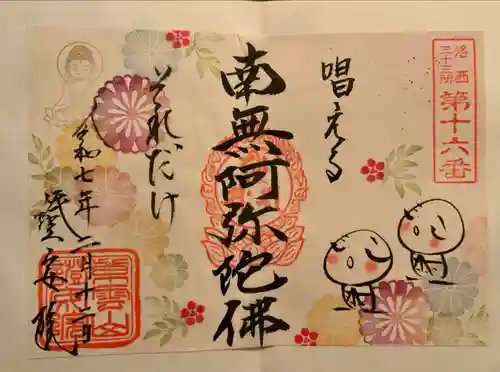 洛西
三十三所
第十六番
唱える
南無阿弥陀佛
それだけ
令和七年二月十二日